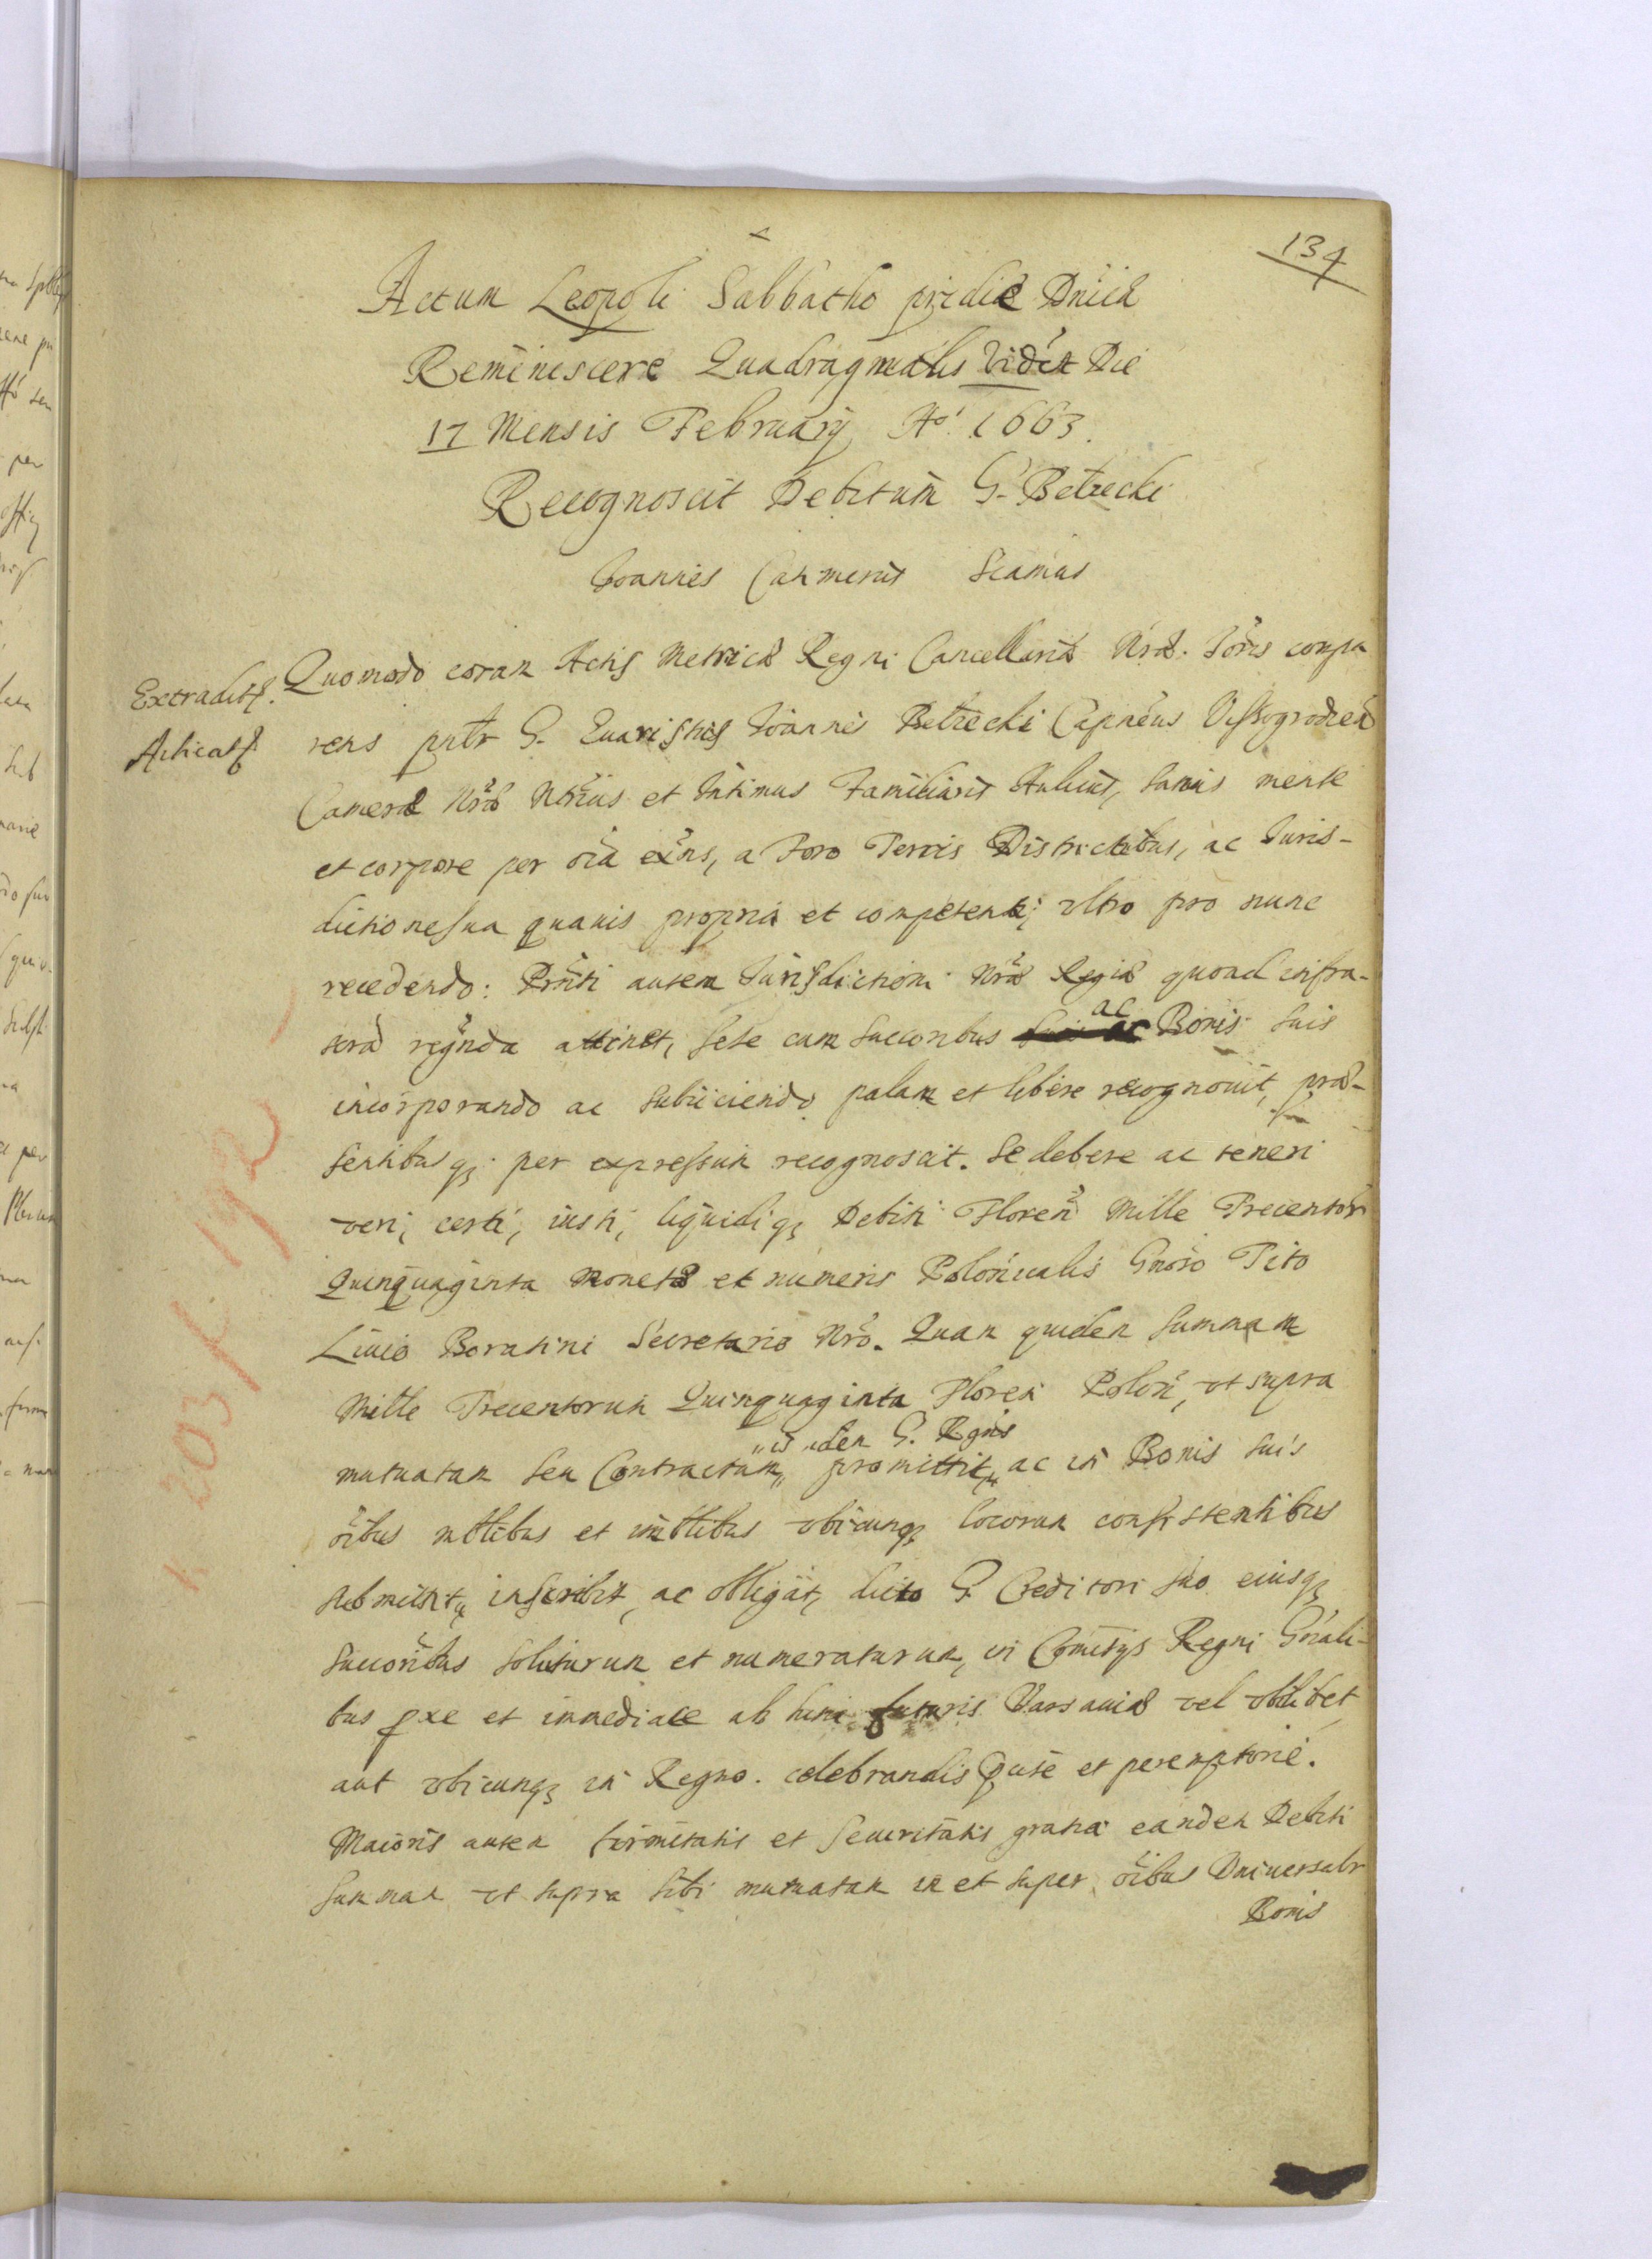 134
Actum Leopoli Sabbatho pridie Dnicæ
Reminiscere Quadragmalis videt Die
17 Mensis February Aº 1663.
Recognoscit Debitum G. Betrecki
Ioannes Scamus
Extradit.
Quomodo coram Actis Metricæ Regni Cancellariæ Nræ. compa
rens G. Ioannes Betrecki Capneus
Cameræ Nræ Nrius et Intimus Familiaris, sanus mente
et corpore per oia exns, a Foro Terris Districtibus, ac Iuris-
dictione sua quavis propria et competenti; ultro pro nunc
recedendo: Prnti autem Iurisdictioni Nræ Regiæ quoad infra-
attinet, sese cum Succoribus ac Bonis suis
incorporando ac subiiciendo palam et libere recognovit, præ-
sentibusq; per expressum recognoscit. Se debere ac teneri
veri, certi, iusti, liquidiq; Debiti Floren Mille Trecentor
Quinquaginta monetæ et numeri Polonicalis Gnoso Tito
Liuio Boratini Secretario Nro. Quam quidem summam
Mille Trecentorum Quinquaginta Floren Polon, ut supra
idem G. Rgns
mutuatam seu Contractam promittit, ac in Bonis suis
oibus mblibus et imblibus ubicunq; locorum consistentibus
submittit, inscribit, ac obligat, dicto G. Creditori suo eiusq;
succoribus soluturum et numeraturum, in Comitys Regni Gnali-
bus pxe et immediate ab hinc futuris Varsaviæ vel ubilibet
aut ubicunq; in Regno. celebrandis et peremptorie.
Maioris autem firmitatis et securitatis gratia eandem Debiti
summam ut supra sibi mutuatam in et super oibus Universalr
Bonis